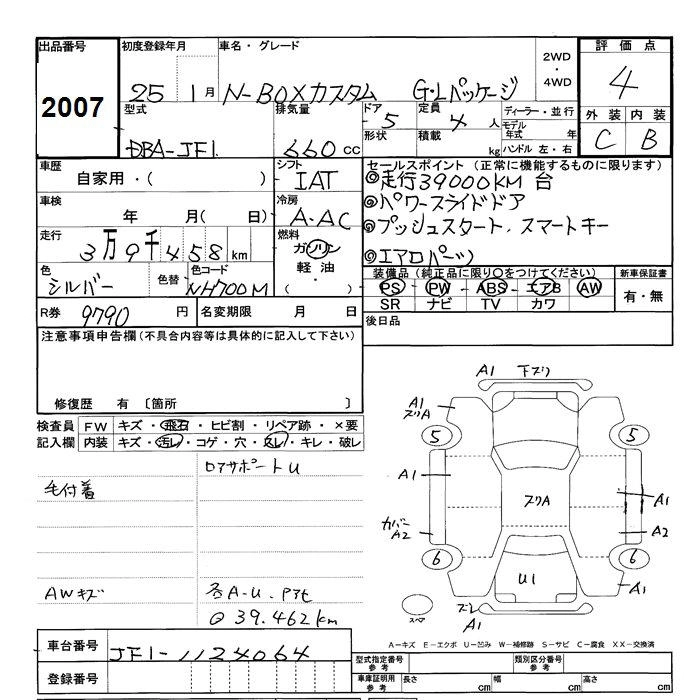 出品番号
2007
初度登録年月
25 1月
車名・グレード
N-BOXカスタム G・Lパッケージ
2WD
・
4WD
評価点
4
外装 内装
C B
型式
DBA-JF1
排気量
660cc
ドア
5
形状
定員
4人
積載
kg
ディーラー・並行
モデル年式 年
ハンドル 左・右
車歴
自家用・( )
シフト
IAT
車検
年 月( 日)
冷房
A・AC
走行
3万9千458km
燃料
ガソリン
軽油
・( )
色
シルバー
色替
色コード
NH700M
R券 9790円
名変期限 月 日
セールスポイント(正常に機能するものに限ります)
◎走行39000KM台
◎パワースライドドア
◎プッシュスタート.スマートキー
◎エアロパーツ
装備品(純正品に限り○をつけてください)
PS PW ABS エアB AW
SR ナビ TV カワ
新車保証書
有・無
後日品
注意事項申告欄(不具合内容等は具体的に記入して下さい)
修復歴 有 〔箇所 〕
検査員
記入欄
FW キズ・飛石・ヒビ割・リペア跡・×要
内装 キズ・汚レ・コゲ・穴・スレ・キレ・破レ
ロアサポートU
毛付着
AWキズ
各A-U.
@39.462km
A1 下ズリ
A1
ズリA
5 5
A1
ズリA
A1
カバー
A2
A2
6 6
U1
A1
スペア
ズレ
A1
A-キズ E-エクボ U-凹み W-補修跡 S-サビ C-腐食 XX-交換済
車台番号
JF1-1124064
登録番号
型式指定番号
参考
類別区分番号
参考
車庫証明用
参考
長さ cm 幅 cm 高さ cm